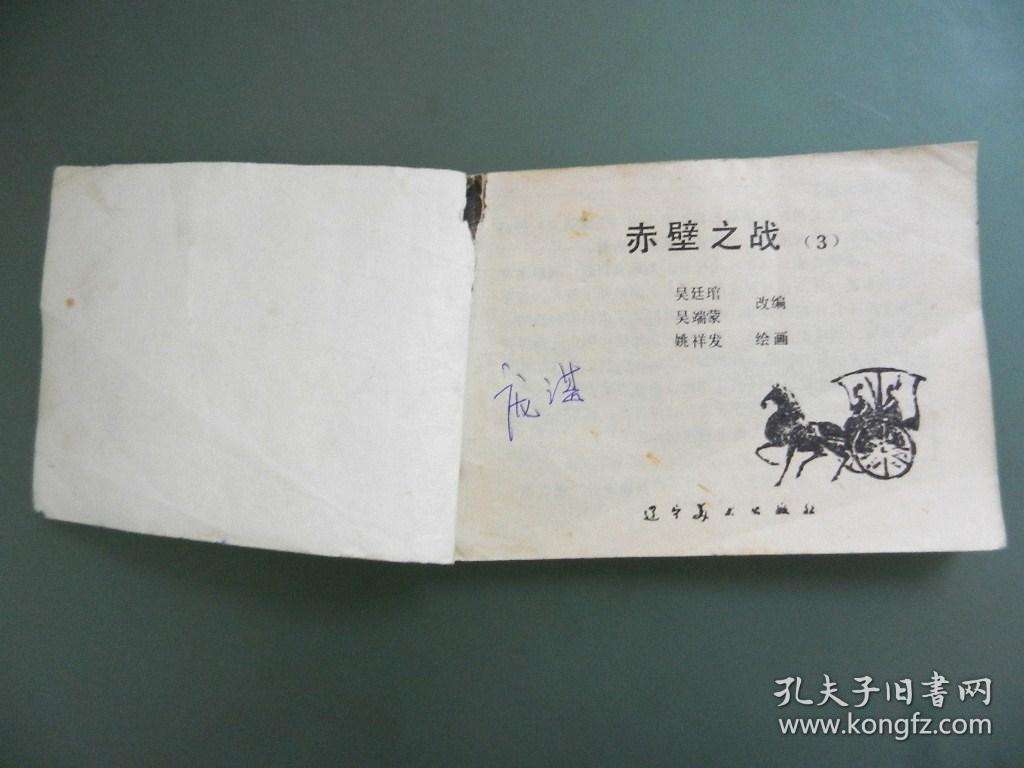 赤壁之战（3）
吴廷琯
改编
吴端蒙
姚祥发 绘画
辽宁美术出版社
孔夫子旧书网
www.kongfz.com